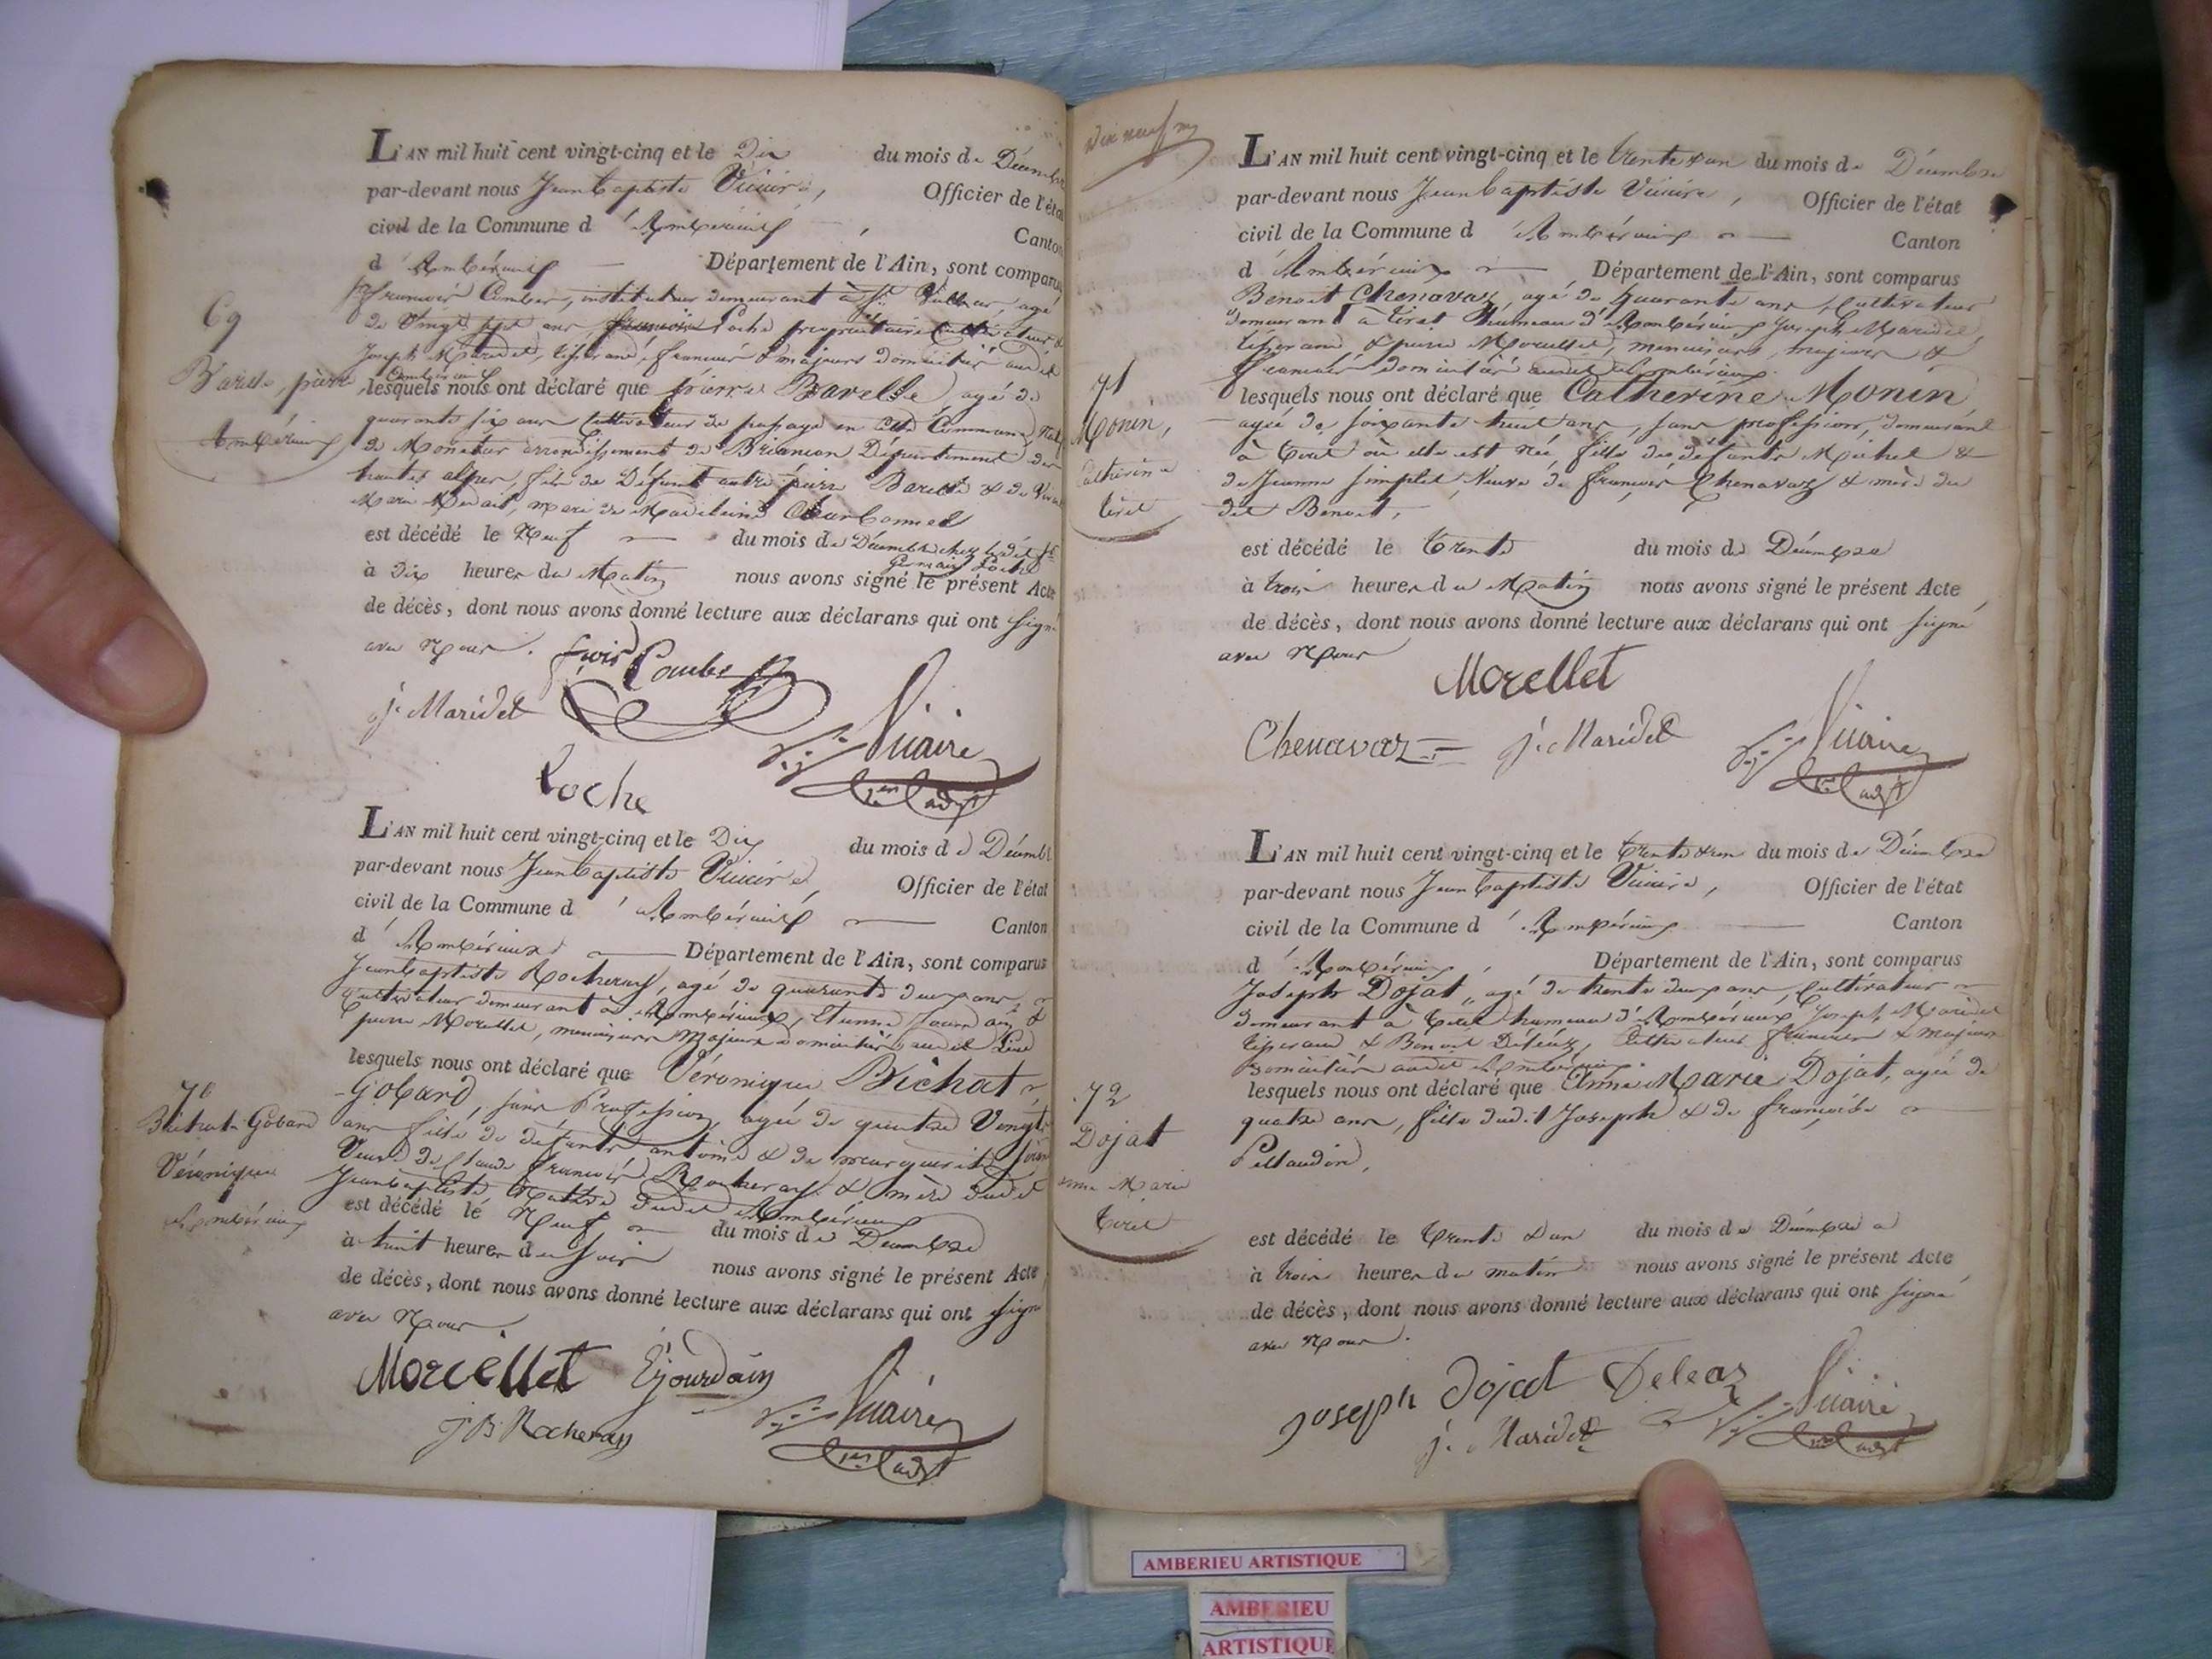 69
Barelle, pierre
Ambérieux
L'AN mil huit cent vingt-cinq et le Dix du mois de Décembre
par-devant nous Jean Baptiste Vicaire, Officier de l'état
civil de la Commune d'Ambérieux, Canton
d'Ambérieux Département de l'Ain, sont comparus
françois Combe, instituteur demeurant à St agé
de Vingt sept ans Roche propriétaire Cultivateur &
Joseph Maridet, tisserand, français & majeurs domiciliés audit
Ambérieux
lesquels nous ont déclaré que pierre Barelle agé de
quarante six ans Cultivateur de passage en cette Commune, natif
de Monetier arrondissement de Briançon Département des
hautes alpes, fils de Défunt autre pierre Barelle & de
Marie mari de Madeleine Charbonnel
est décédé le Neuf du mois de Décembre chez ledit
Germain Roche
à dix heures du Matin nous avons signé le présent Acte
de décès, dont nous avons donné lecture aux déclarans qui ont signé
avec Nous.
fçois Combe
j. Maridet
Vicaire
Roche
70
Bichat-Gobard
Véronique
Ambérieux
L'AN mil huit cent vingt-cinq et le Dix du mois de Décembre
par-devant nous Jean Baptiste Vicaire, Officier de l'état
civil de la Commune d'Ambérieux Canton
d'Ambérieux Département de l'Ain, sont comparus
Jean Baptiste Rocheray, agé de quarante deux ans,
Cultivateur demeurant à Ambérieux, Etienne Jourdain, &
pierre Morellet, menuisier majeurs domiciliés audit Lieu
lesquels nous ont déclaré que Véronique Bichat
-Gobard, sans Profession, agée de quatre Vingt
ans fille de défunts antoine & de marguerite
Veuve de Claude françois Rocheray & mère dudit
Jean Baptiste dudit Ambérieux
est décédé le Neuf du mois de Décembre
à huit heures du soir nous avons signé le présent Acte
de décès, dont nous avons donné lecture aux déclarans qui ont signé
avec Nous.
Morellet Ejourdain
J B Rocheray
Vicaire
dix neuf
71
Monin,
Catherine
tiret
L'AN mil huit cent vingt-cinq et le trente & un du mois de Décembre
par-devant nous Jean Baptiste Vicaire, Officier de l'état
civil de la Commune d'Ambérieux Canton
d'Ambérieux Département de l'Ain, sont comparus
Benoit Chenavaz, agé de quarante ans, Cultivateur
demeurant à tiret hameau d'Ambérieux Joseph Maridet,
tisserand & pierre Morellet, menuisiers, majeurs &
français domiciliés audit Ambérieux.
lesquels nous ont déclaré que Catherine Monin
agée de soixante huit ans, sans profession, demeurant
à tiret où elle est née, fille des défunts Michel &
de Jeanne simplet, Veuve de françois Chenavaz & mère du
dit Benoit,
est décédé le trente du mois de Décembre
à trois heures du Matin nous avons signé le présent Acte
de décès, dont nous avons donné lecture aux déclarans qui ont signé
avec Nous
Morellet
Chenavaz j. Maridet
Vicaire
72
Dojat
anne Marie
tiret
L'AN mil huit cent vingt-cinq et le trente & un du mois de Décembre
par-devant nous Jean Baptiste Vicaire, Officier de l'état
civil de la Commune d'Ambérieux Canton
d'Ambérieux, Département de l'Ain, sont comparus
Joseph Dojat, agé de trente deux ans, Cultivateur
demeurant à tiret hameau d'Ambérieux Joseph Maridet
tisserand & Benoit Déléaz, Cultivateur français & majeurs
domiciliés audit Ambérieux.
lesquels nous ont déclaré que Anne Marie Dojat, agée de
quatre ans, fille dudit Joseph & de françoise
Pellaudin,
est décédé le trente & un du mois de Décembre
à trois heures du matin nous avons signé le présent Acte
de décès, dont nous avons donné lecture aux déclarans qui ont signé
avec Nous.
Joseph Dojat Deleaz
j. Maridet
Vicaire
AMBERIEU ARTISTIQUE
AMBERIEU
ARTISTIQUE